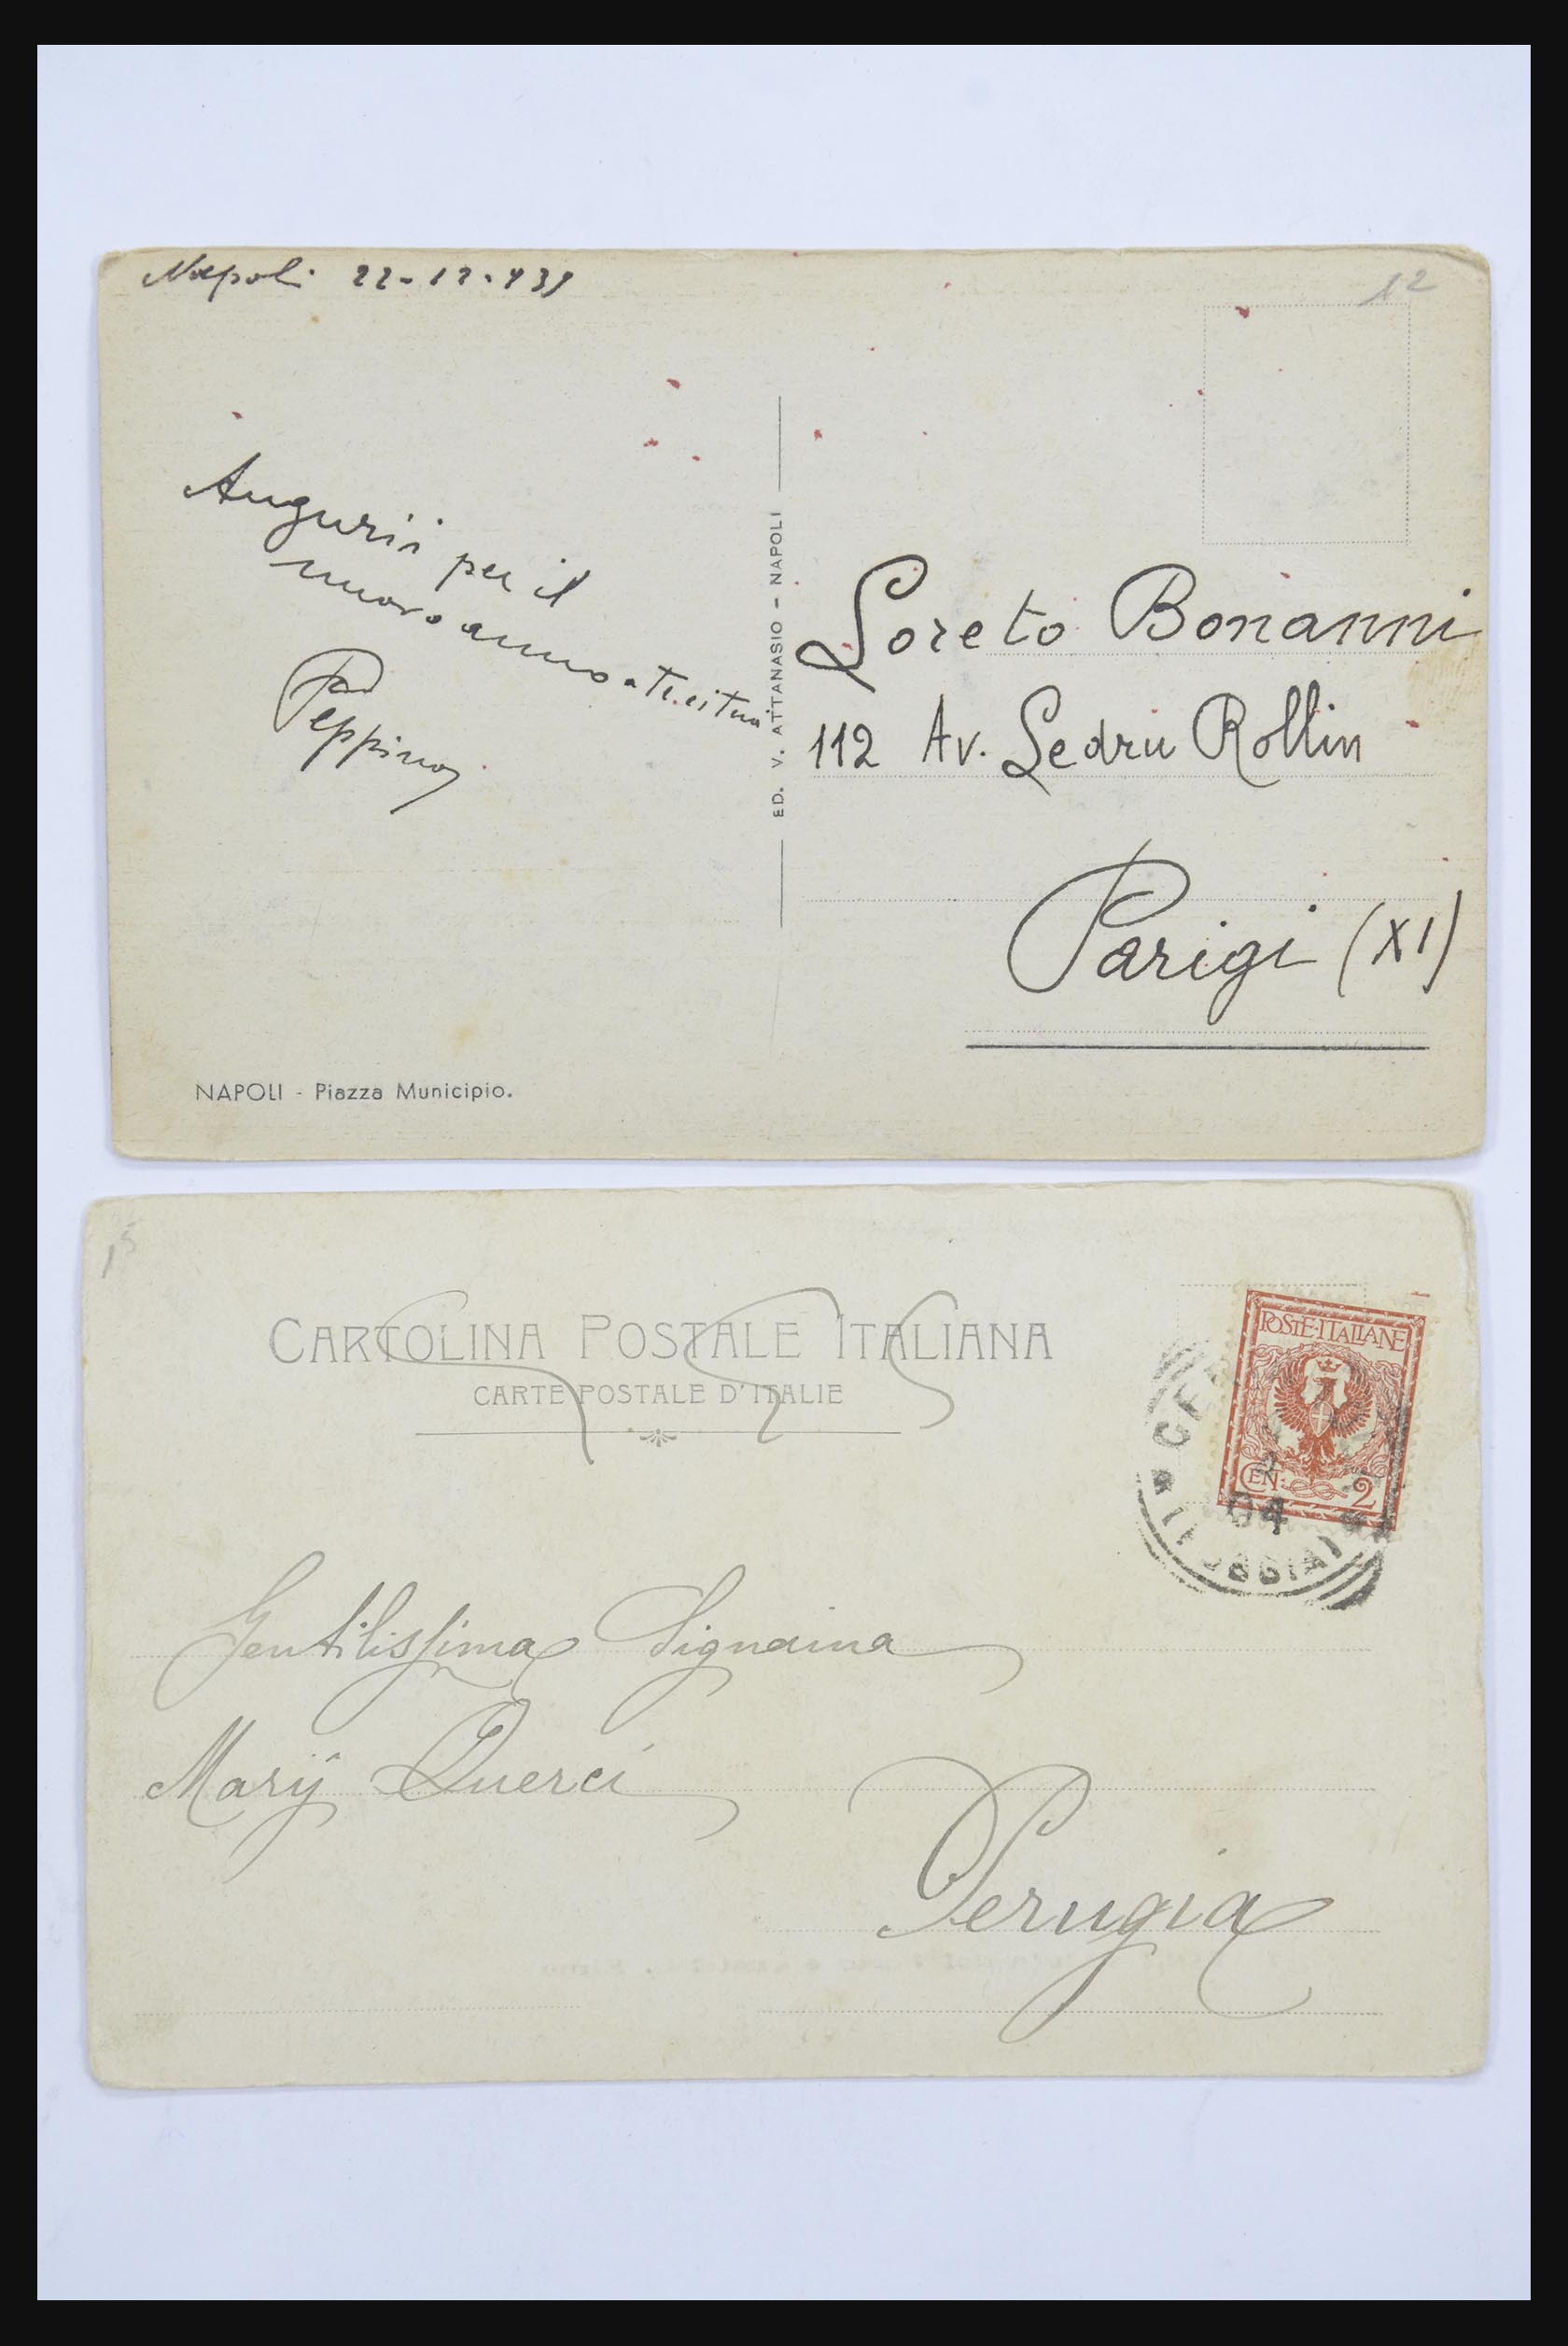 Napoli 22-12-939
12
Augurii per il
nuovo anno a te ei tuoi
Peppino
ED. V. ATTANASIO - NAPOLI
Loreto Bonanni
112 Av. Ledru Rollin
Parigi (XI)
NAPOLI - Piazza Municipio.
15
CARTOLINA POSTALE ITALIANA
CARTE POSTALE D'ITALIE
POSTE·ITALIANE
CEN. 2
04
(FOGGIA)
Gentilissima Signorina
Mary Querci
Perugia